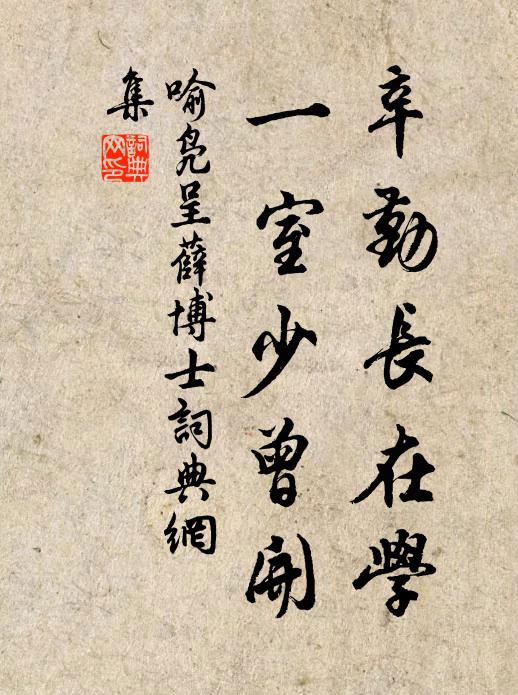 辛勤長在學
一室少曾開
喻鳧呈薛博士詞典網
集
詞典
网印